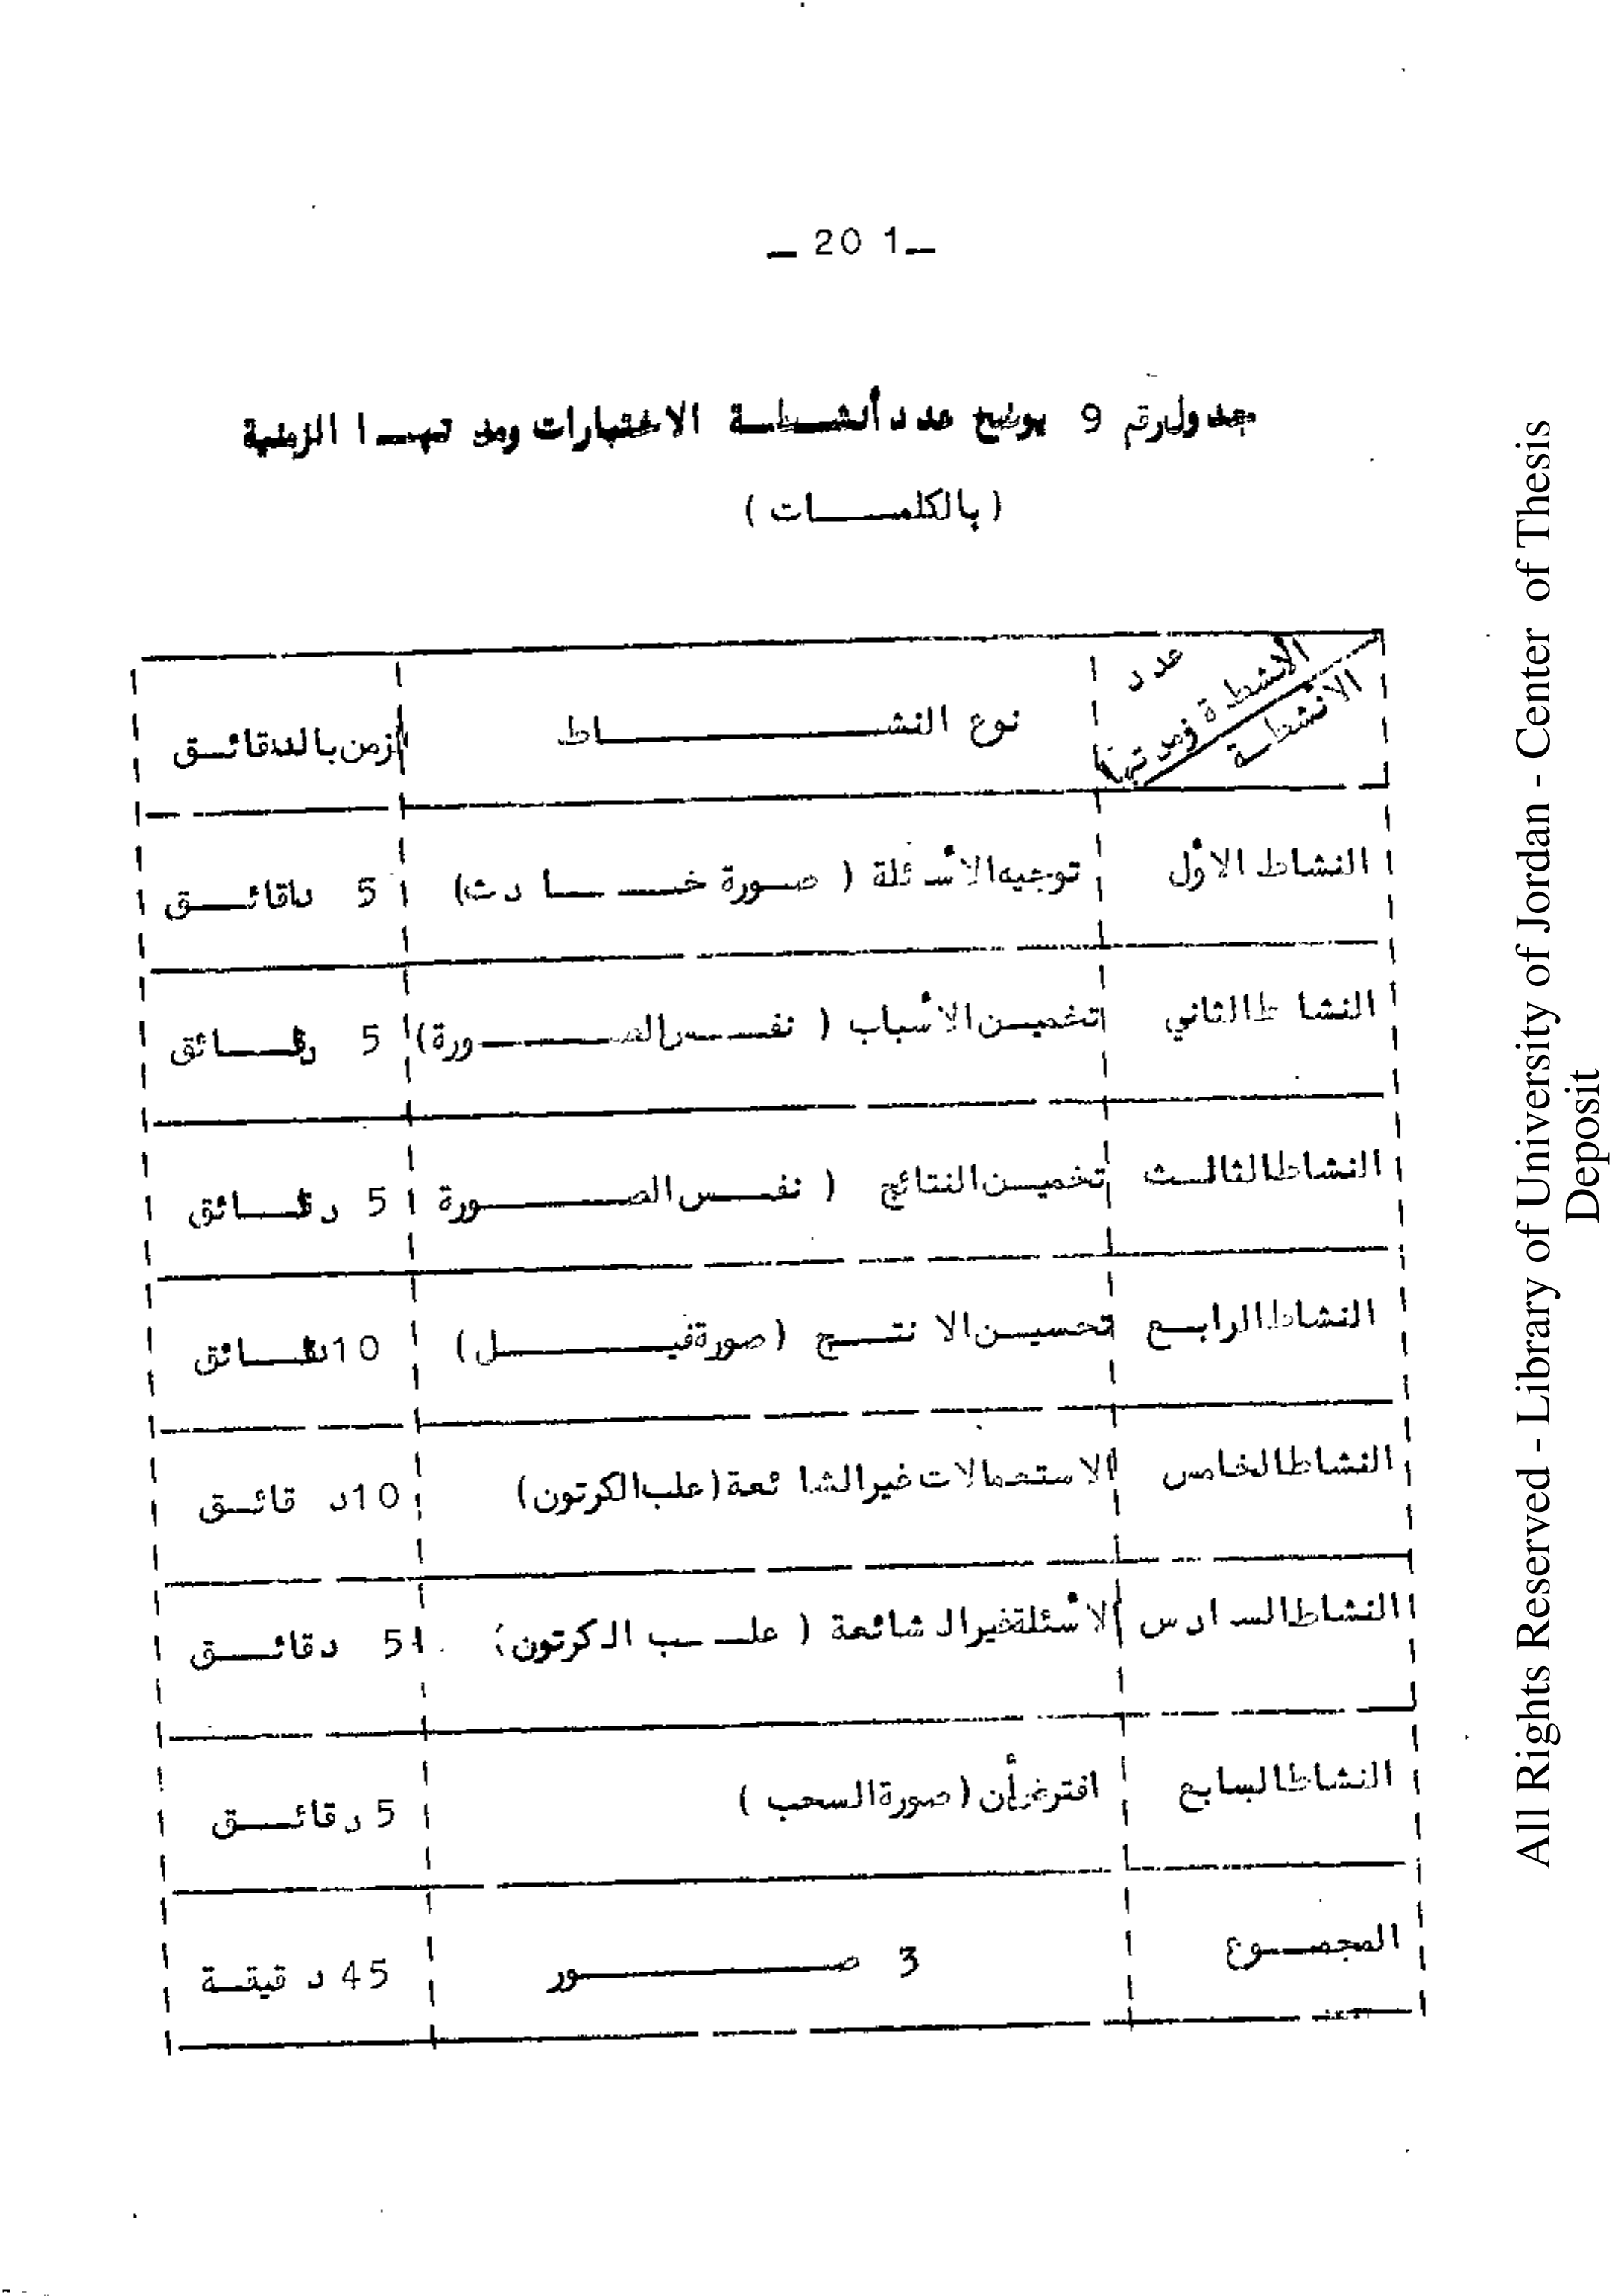 _ 20 1_
جدول رقم 9 يوضح عدد أنشطة الاختبارات ومدتها الزمنية
( بالكلمات )
عدد الأنشطة ومدتها الأنشطة | نوع النشاط | الزمن بالدقائق
النشاط الأول | توجيه الأسئلة ( صورة خادث) | 5 دقائق
النشاط الثاني | تخمين الأسباب ( نفس الصورة) | 5 دقائق
النشاط الثالث | تخمين النتائج ( نفس الصورة | 5 دقائق
النشاط الرابع | تحسين الانتج (صورة فيل) | 10 دقائق
النشاط الخامس | الاستعمالات غير الشائعة (علب الكرتون) | 10 دقائق
النشاط السادس | الأسئلة غير الشائعة ( علب الكرتون) | 5 دقائق
النشاط السابع | افترض أن (صورة السحب ) | 5 دقائق
المجموع | 3 صور | 45 دقيقة
All Rights Reserved - Library of University of Jordan - Center of Thesis
Deposit